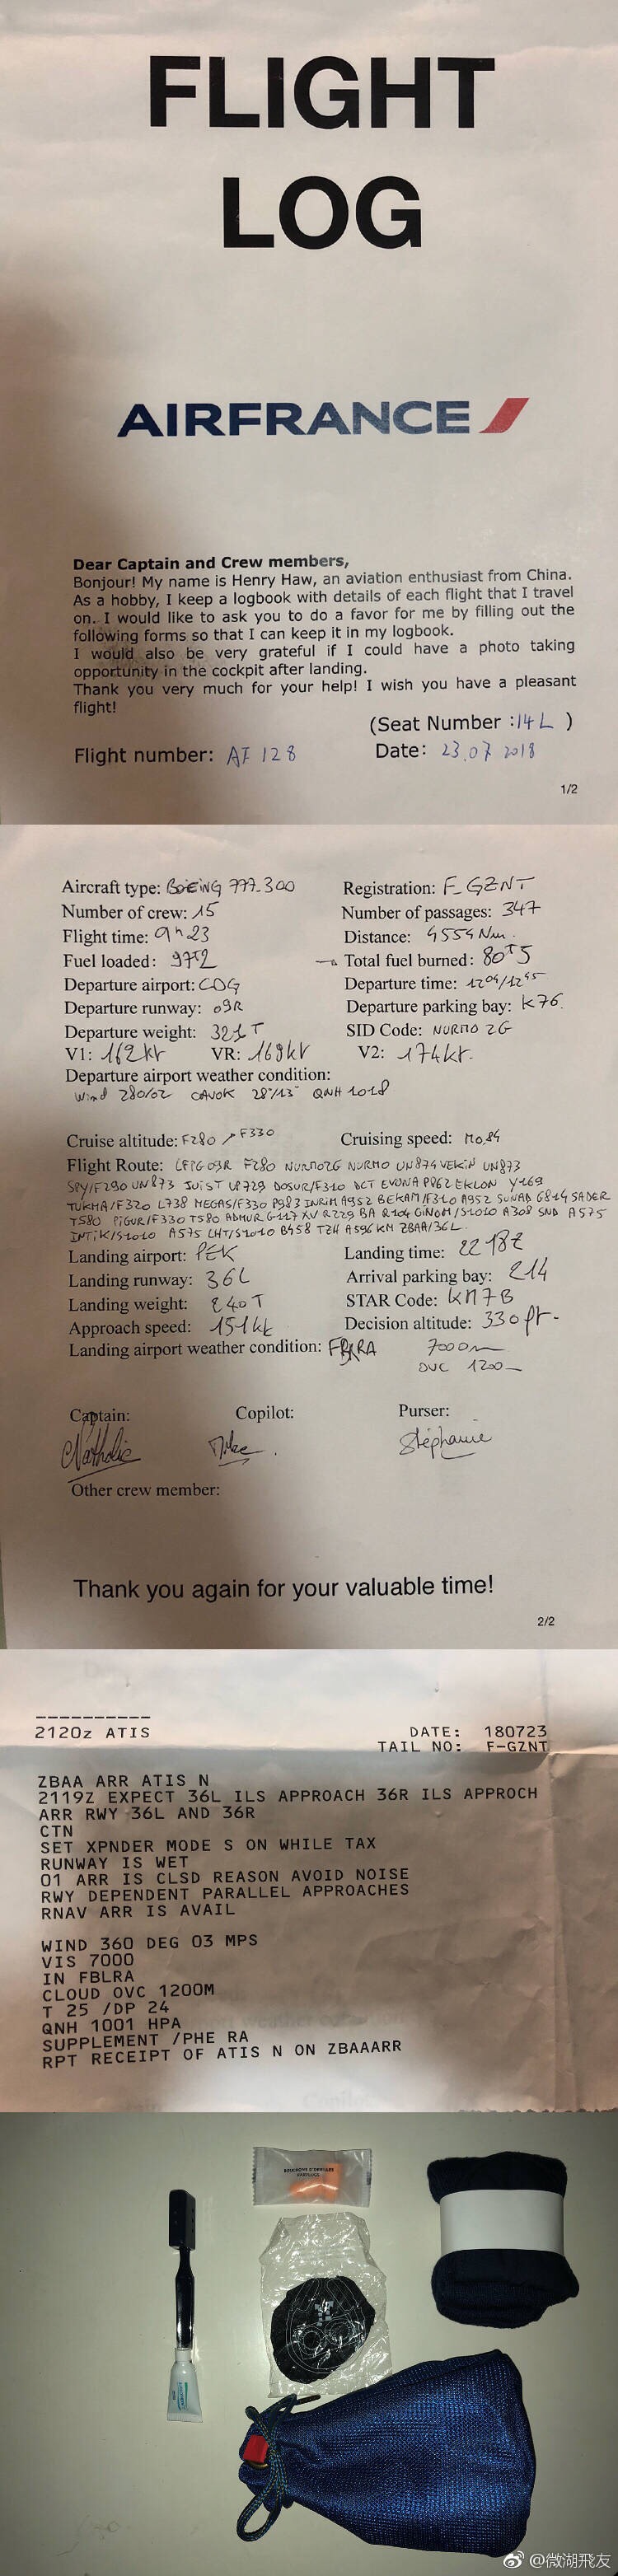 FLIGHT
LOG
AIRFRANCE
Dear Captain and Crew members,
Bonjour! My name is Henry Haw, an aviation enthusiast from China.
As a hobby, I keep a logbook with details of each flight that I travel
on. I would like to ask you to do a favor for me by filling out the
following forms so that I can keep it in my logbook.
I would also be very grateful if I could have a photo taking
opportunity in the cockpit after landing.
Thank you very much for your help! I wish you have a pleasant
flight!
(Seat Number :14L )
Flight number: AF 128 Date: 23.07 2018
1/2
Aircraft type: BOEING 777-300 Registration: F-GZNT
Number of crew: 15 Number of passages: 347
Flight time: 9h23 Distance: 4554 Nm.
Fuel loaded: 97T2 Total fuel burned: 80T5
Departure airport: CDG Departure time: 1204/1245
Departure runway: 09R Departure parking bay: K76
Departure weight: 321T SID Code: NURMO 2G
V1: 162kt VR: 169kt V2: 174kt.
Departure airport weather condition:
Wind 280/02 CAVOK 28°/13° QNH 1018
Cruise altitude: F280 ↗ F330 Cruising speed: M0.84
Flight Route: LFPG09R F280 NURMO2G NURMO UN874 VEKIN UN873
SPY/F290 UN873 JUIST UP729 DOSUR/F310 DCT EVONA P862 EKLON Y169
TUKMA/F320 L738 MEGAS/F330 P983 INRIM A952 BEKAM/F310 A952 SUNAD G814 SADER
T580 PIGUR/F330 T580 ADMUR G117 XV R229 BA R104 GINOM/S1010 A308 SND A575
INTIK/S1010 A575 LHT/S1010 B458 TZH A596 KM ZBAA/36L
Landing airport: PEK Landing time: 2218Z
Landing runway: 36L Arrival parking bay: 214
Landing weight: 240T STAR Code: KM7B
Approach speed: 151kt Decision altitude: 330ft-
Landing airport weather condition: FBLRA 7000m
OVC 1200
Captain: Copilot: Purser:
Stéphanie
Other crew member:
Thank you again for your valuable time!
2/2
----------
2120z ATIS DATE: 180723
TAIL NO: F-GZNT
ZBAA ARR ATIS N
2119Z EXPECT 36L ILS APPROACH 36R ILS APPROCH
ARR RWY 36L AND 36R
CTN
SET XPNDER MODE S ON WHILE TAX
RUNWAY IS WET
01 ARR IS CLSD REASON AVOID NOISE
RWY DEPENDENT PARALLEL APPROACHES
RNAV ARR IS AVAIL
WIND 360 DEG 03 MPS
VIS 7000
IN FBLRA
CLOUD OVC 1200M
T 25 /DP 24
QNH 1001 HPA
SUPPLEMENT /PHE RA
RPT RECEIPT OF ATIS N ON ZBAAARR
@微湖飛友